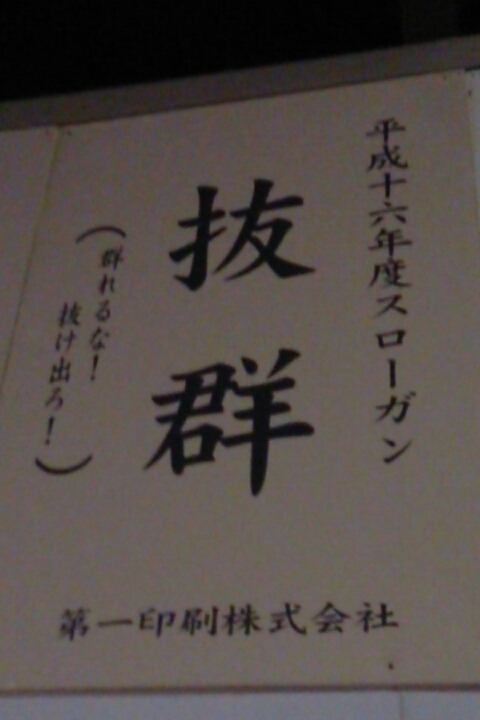 平成十六年度スローガン
抜群
(群れるな!
抜け出ろ!)
第一印刷株式会社